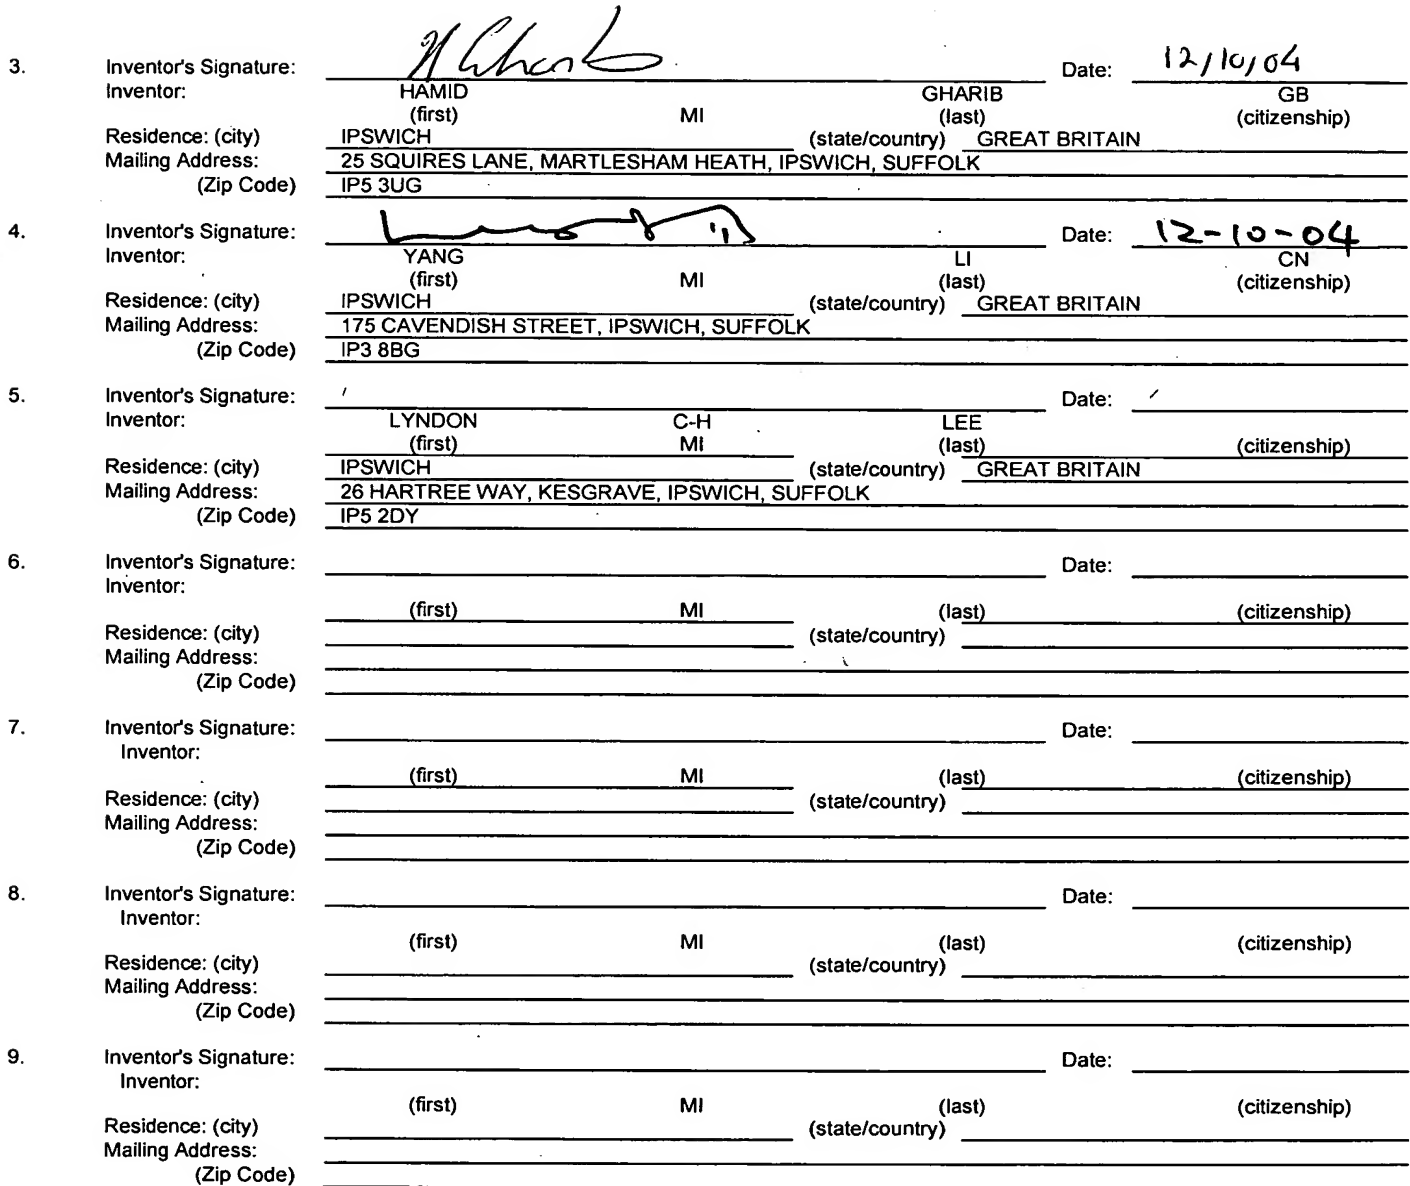 3. Inventor's Signature: Date: 12/10/04
Inventor: HAMID GHARIB GB
(first) MI (last) (citizenship)
Residence: (city) IPSWICH (state/country) GREAT BRITAIN
Mailing Address: 25 SQUIRES LANE, MARTLESHAM HEATH, IPSWICH, SUFFOLK
(Zip Code) IP5 3UG
4. Inventor's Signature: Date: 12-10-04
Inventor: YANG LI CN
(first) MI (last) (citizenship)
Residence: (city) IPSWICH (state/country) GREAT BRITAIN
Mailing Address: 175 CAVENDISH STREET, IPSWICH, SUFFOLK
(Zip Code) IP3 8BG
5. Inventor's Signature: Date:
Inventor: LYNDON C-H LEE
(first) MI (last) (citizenship)
Residence: (city) IPSWICH (state/country) GREAT BRITAIN
Mailing Address: 26 HARTREE WAY, KESGRAVE, IPSWICH, SUFFOLK
(Zip Code) IP5 2DY
6. Inventor's Signature: Date:
Inventor:
(first) MI (last) (citizenship)
Residence: (city) (state/country)
Mailing Address:
(Zip Code)
7. Inventor's Signature: Date:
Inventor:
(first) MI (last) (citizenship)
Residence: (city) (state/country)
Mailing Address:
(Zip Code)
8. Inventor's Signature: Date:
Inventor:
(first) MI (last) (citizenship)
Residence: (city) (state/country)
Mailing Address:
(Zip Code)
9. Inventor's Signature: Date:
Inventor:
(first) MI (last) (citizenship)
Residence: (city) (state/country)
Mailing Address:
(Zip Code)